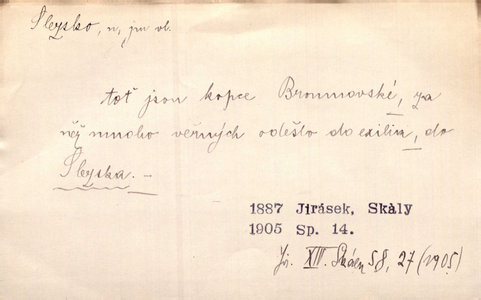 Slezsko, n, jm vl.
toť jsou kopce Broumovské, za
něž mnoho věrných odešlo do exilia, do
Slezska. —
1887 Jirásek, Skàly
1905 Sp. 14.
Jir. XIV. Skály 58, 27 (1905)